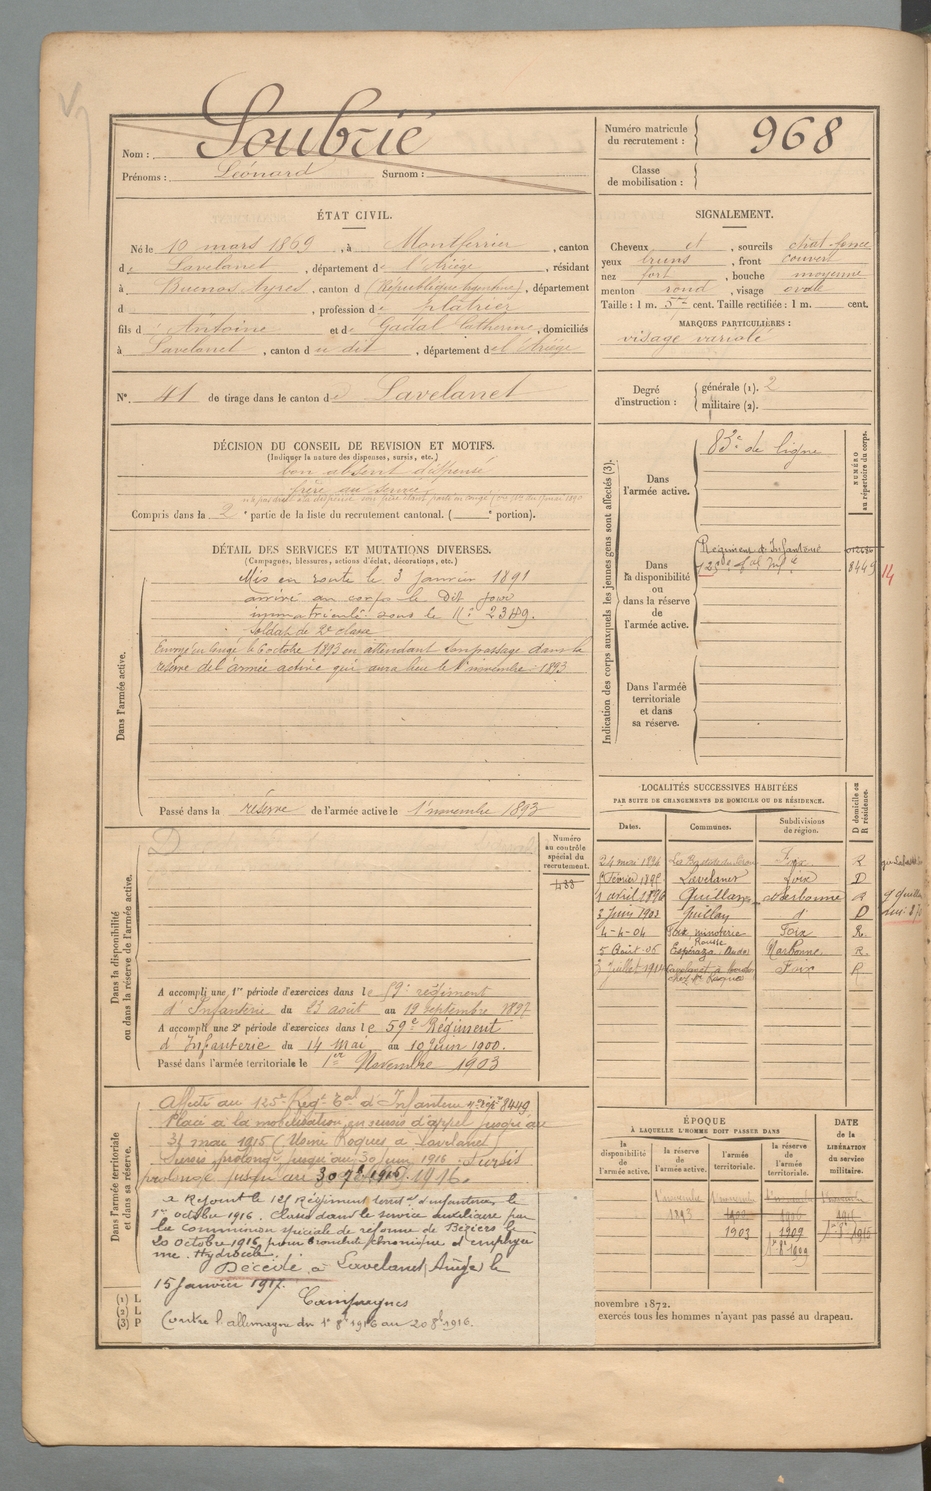 Nom : Soubrié
Prénoms : Léonard Surnom :
Numéro matricule du recrutement : 968
Classe de mobilisation :
ÉTAT CIVIL.
Né le 10 mars 1869, à Montferrier, canton
de Lavelanet, département de l'Ariège, résidant
à Buenos Ayres, canton d (République Argentine), département
d , profession de Plâtrier
fils d'Antoine et de Gadal Catherine, domiciliés
à Lavelanet, canton du dit, département de l'Ariège
N° 41 de tirage dans le canton de Lavelanet
SIGNALEMENT.
Cheveux et, sourcils chat. foncé
yeux bruns, front couvert
nez fort, bouche moyenne
menton rond, visage ovale
Taille : 1 m. cent. Taille rectifiée : 1 m. cent.
MARQUES PARTICULIÈRES :
visage variolé
Degré d'instruction : générale (1). 2
militaire (2).
DÉCISION DU CONSEIL DE REVISION ET MOTIFS.
(Indiquer la nature des dispenses, sursis, etc.)
bon absent dispensé
frère au service
Compris dans la 2e partie de la liste du recrutement cantonal. ( e portion).
DÉTAIL DES SERVICES ET MUTATIONS DIVERSES.
(Campagnes, blessures, actions d'éclat, décorations, etc.)
Dans l'armée active.
Mis en route le 3 janvier 1891
arrivé au corps le Dit jour
immatriculé sous le N° 2349.
Soldat de 2e classe
Envoyé en congé le 6 octobre 1893 en attendant son passage dans la
réserve de l'armée active qui aura lieu le 1er novembre 1893
Passé dans la réserve de l'armée active le 1er novembre 1893
Indication des corps auxquels les jeunes gens sont affectés (3).
NUMÉRO au répertoire du corps.
Dans l'armée active.
83e de ligne
Dans la disponibilité ou dans la réserve de l'armée active.
Régiment d'Infanterie
125e tal Inf ie 8449 14
Dans l'armée territoriale et dans sa réserve.
LOCALITÉS SUCCESSIVES HABITÉES
PAR SUITE DE CHANGEMENTS DE DOMICILE OU DE RÉSIDENCE.
Dates. Communes. Subdivisions de région. D domicile ou R résidence.
24 mai 1894 La Bastide du Foix R
Février Lavelanet Foix D
1 avril 1896 Quillan Narbonne R
3 Juin 1902 Quillan d° D
4-4-04 Foix, minoterie Rousse Foix R.
5 Août 06 Espéraza. Aude Narbonne R.
juillet 1914 Lavelanet Foix R
Dans la disponibilité ou dans la réserve de l'armée active.
Numéro au contrôle spécial du recrutement.
433
A accompli une 1re période d'exercices dans le 59e régiment
d'Infanterie du 23 août au 19 septembre 1897
A accompli une 2e période d'exercices dans le 59e Régiment
d'Infanterie du 14 Mai au 10 Juin 1900.
Passé dans l'armée territoriale le 1er Novembre 1903
Dans l'armée territoriale et dans sa réserve.
Affecté au 125e Régt Tal d'Infanterie 8449
Placé à la mobilisation en sursis d'appel jusqu'au
31 mai 1915 (Usine Roques à Lavelanet)
Sursis prolongé jusqu'au 30 juin 1916. Sursis
prolongé jusqu'au 30 7bre 1916.
a Rejoint le 125 Régiment terrial d'infanterie le
1er octobre 1916. Classé dans le service auxiliaire par
la commission spéciale de réforme de Béziers le
20 Octobre 1916, pour bronchite chronique et emphysè
me. Hydrocèle.
Décédé à Lavelanet (Ariège) le
15 Janvier 1917.
Campagnes
Contre l'allemagne du 1er 8bre 1916 au 20 8bre 1916.
ÉPOQUE
À LAQUELLE L'HOMME DOIT PASSER DANS
la disponibilité de l'armée active. la réserve de l'armée active. l'armée territoriale. la réserve de l'armée territoriale. DATE de la LIBÉRATION du service militaire.
1er novembre 1er novembre 1er novembre 1er novembre
1893
1903 1909 1er 8bre 1915
1er 8bre 1909
(1) L
(2) L
(3) P
novembre 1872.
exercés tous les hommes n'ayant pas passé au drapeau.